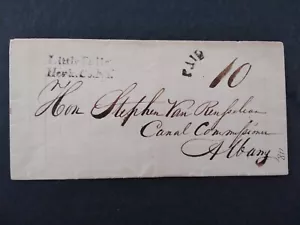 Little Falls
Herk. Co. N.Y.
PAID
10
Hon Stephen Van Rensselaer
Canal Commissioner
Albany